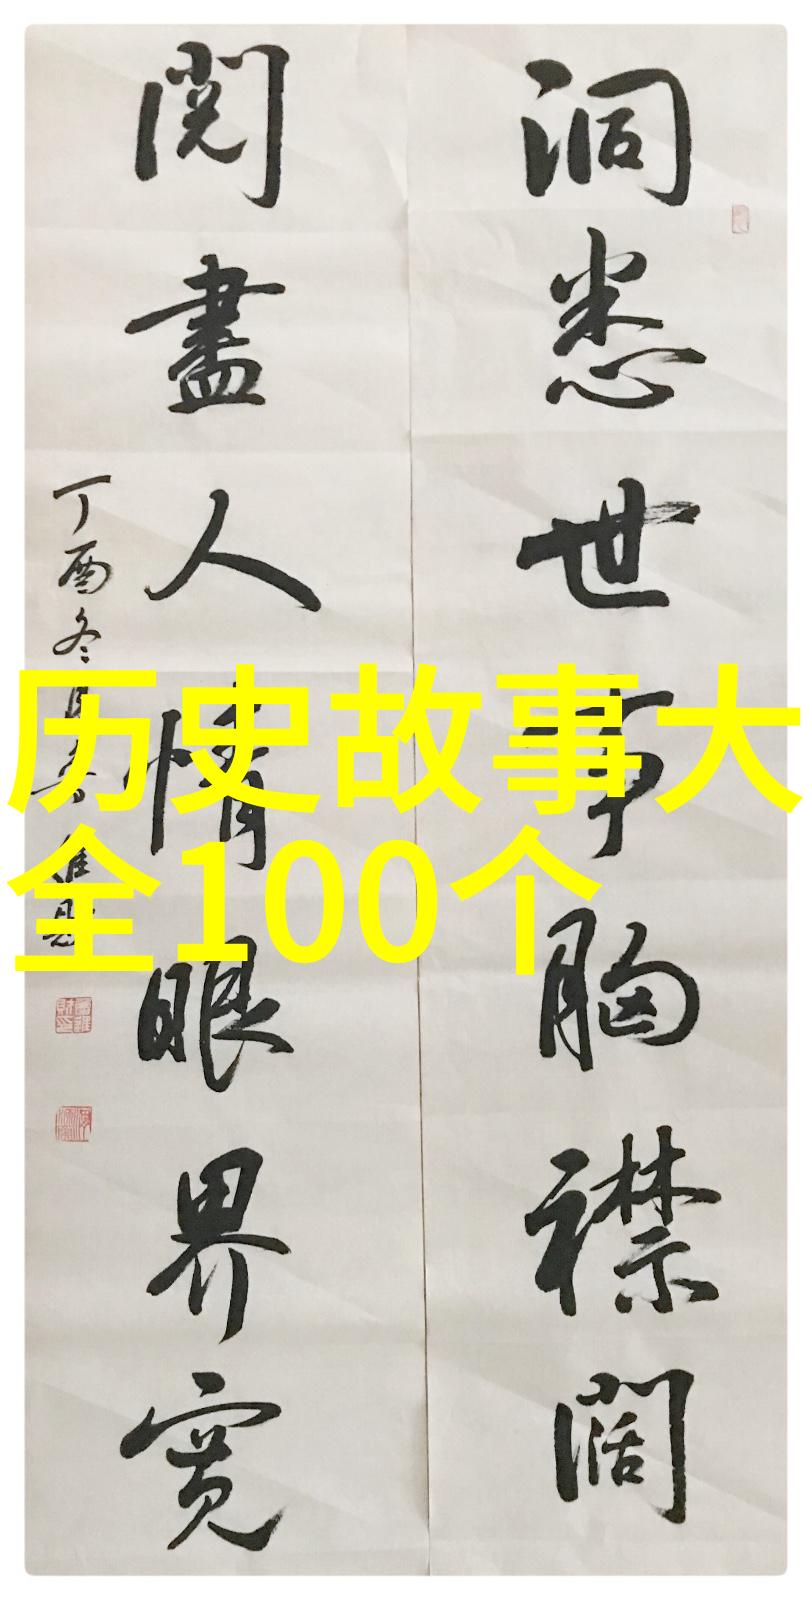 洞悉世事胸襟阔
阅尽人情眼界宽
丁酉冬月
历史故事大
全100个